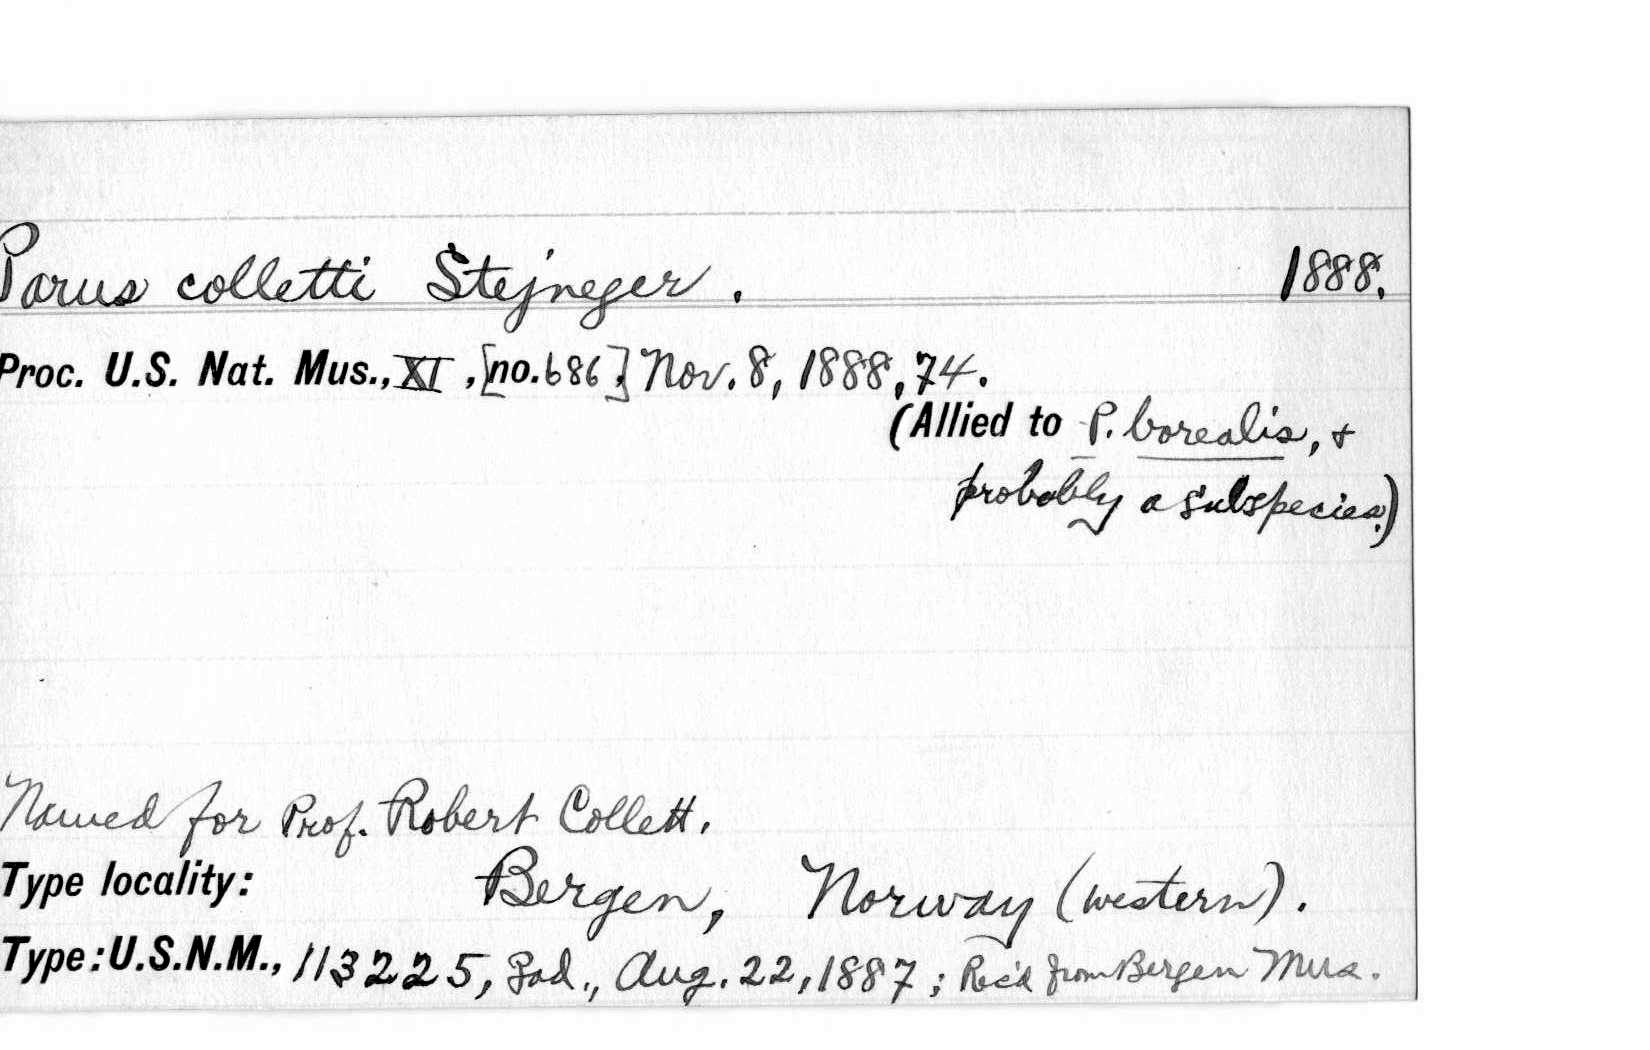 Parus colletti Stejneger. 1888.
Proc. U.S. Nat. Mus., XI, [no. 686.] Nov. 8, 1888, 74.
(Allied to P. borealis, &
probably a subspecies.)
Named for Prof. Robert Collett.
Type locality: Bergen, Norway (western).
Type: U.S.N.M., 113225, Aug. 22, 1887; Rec'd from Bergen Mus.